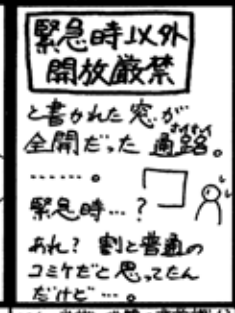 緊急時以外
開放厳禁
と書かれた窓が
全開だった通路。
………。
緊急時…?
あれ? 割と普通の
コミケだと思ってたん
だけど…。